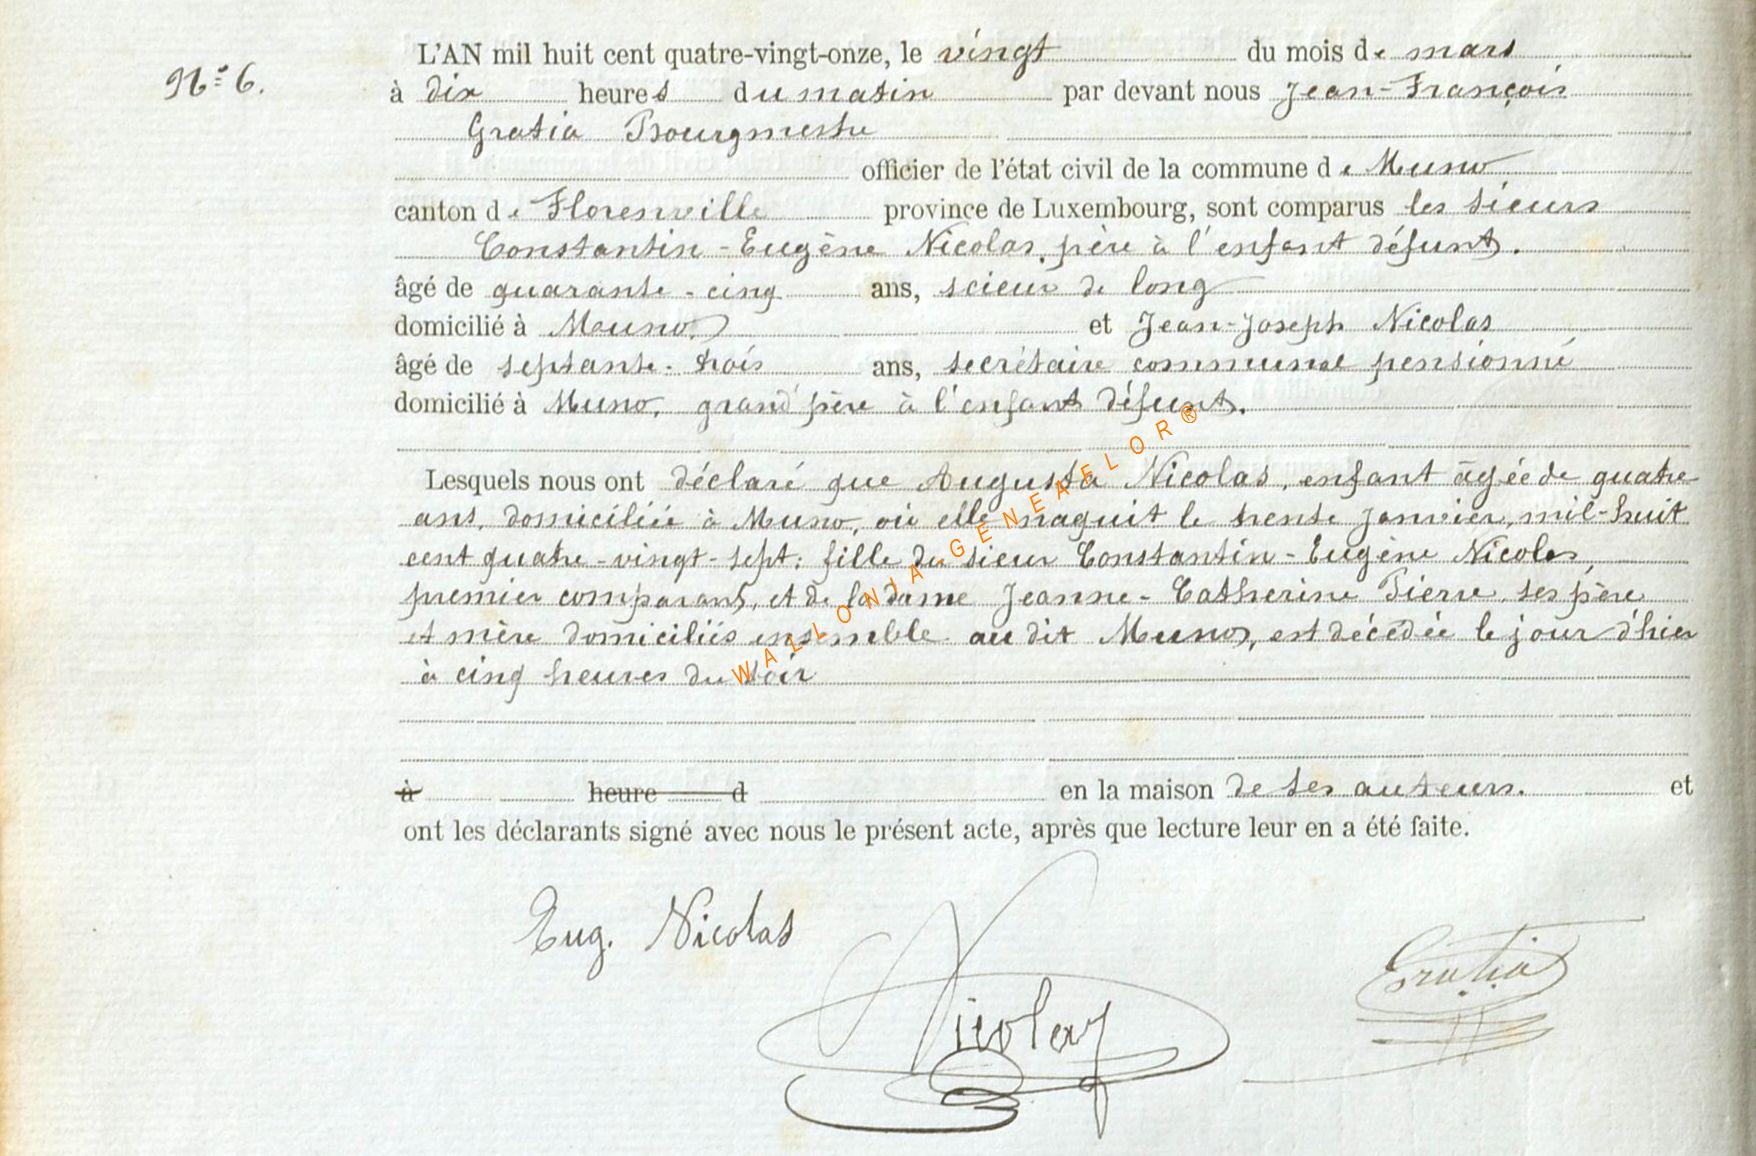 N° 6.
L'AN mil huit cent quatre-vingt-onze, le vingt du mois de mars
à dix heures du matin par devant nous Jean-François
Gratia Bourgmestre
officier de l'état civil de la commune de Muno,
canton de Florenville province de Luxembourg, sont comparus les sieurs
Constantin-Eugène Nicolas, père à l'enfant défunt.
âgé de quarante-cinq ans, scieur de long
domicilié à Muno, et Jean-Joseph Nicolas
âgé de septante-trois ans, secrétaire communal pensionné
domicilié à Muno, grand'père à l'enfant défunt.
Lesquels nous ont déclaré que Augusta Nicolas, enfant âgée de quatre
ans, domiciliée à Muno, où elle naquit le trente janvier, mil-huit
cent quatre-vingt-sept; fille du sieur Constantin-Eugène Nicolas,
premier comparant, et de la dame Jeanne-Catherine Pierre, ses père
et mère domiciliés ensemble au dit Muno, est décédée le jour d'hier
à cinq heures du soir
WALLONIA-GENEAFLOR®
à heure d en la maison de ses auteurs. et
ont les déclarants signé avec nous le présent acte, après que lecture leur en a été faite.
Eug. Nicolas
Nicolas
Gratia